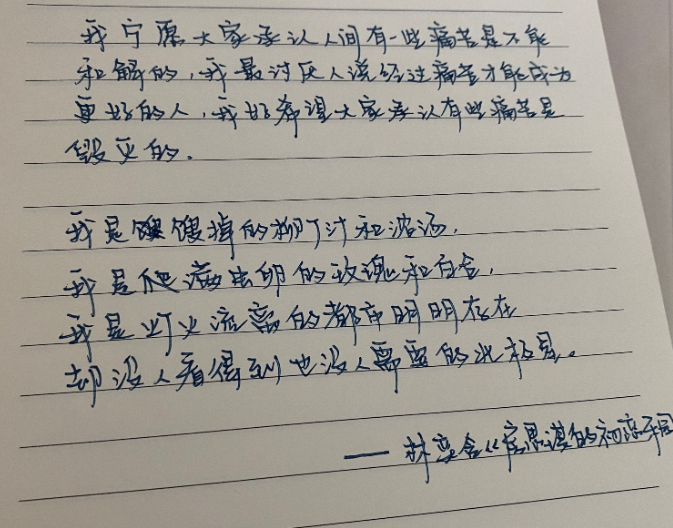 我宁愿大家承认人间有一些痛苦是不能
和解的，我最讨厌人说经过痛苦才能成为
更好的人，我好希望大家承认有些痛苦是
毁灭的.
我是馊馊掉的柳丁汁和浓汤.
我是爬满虫卵的玫瑰和百合，
我是灯火流离的都市明明存在
却没人看得到也没人需要的北极星。
—— 林奕含《房思琪的初恋乐园